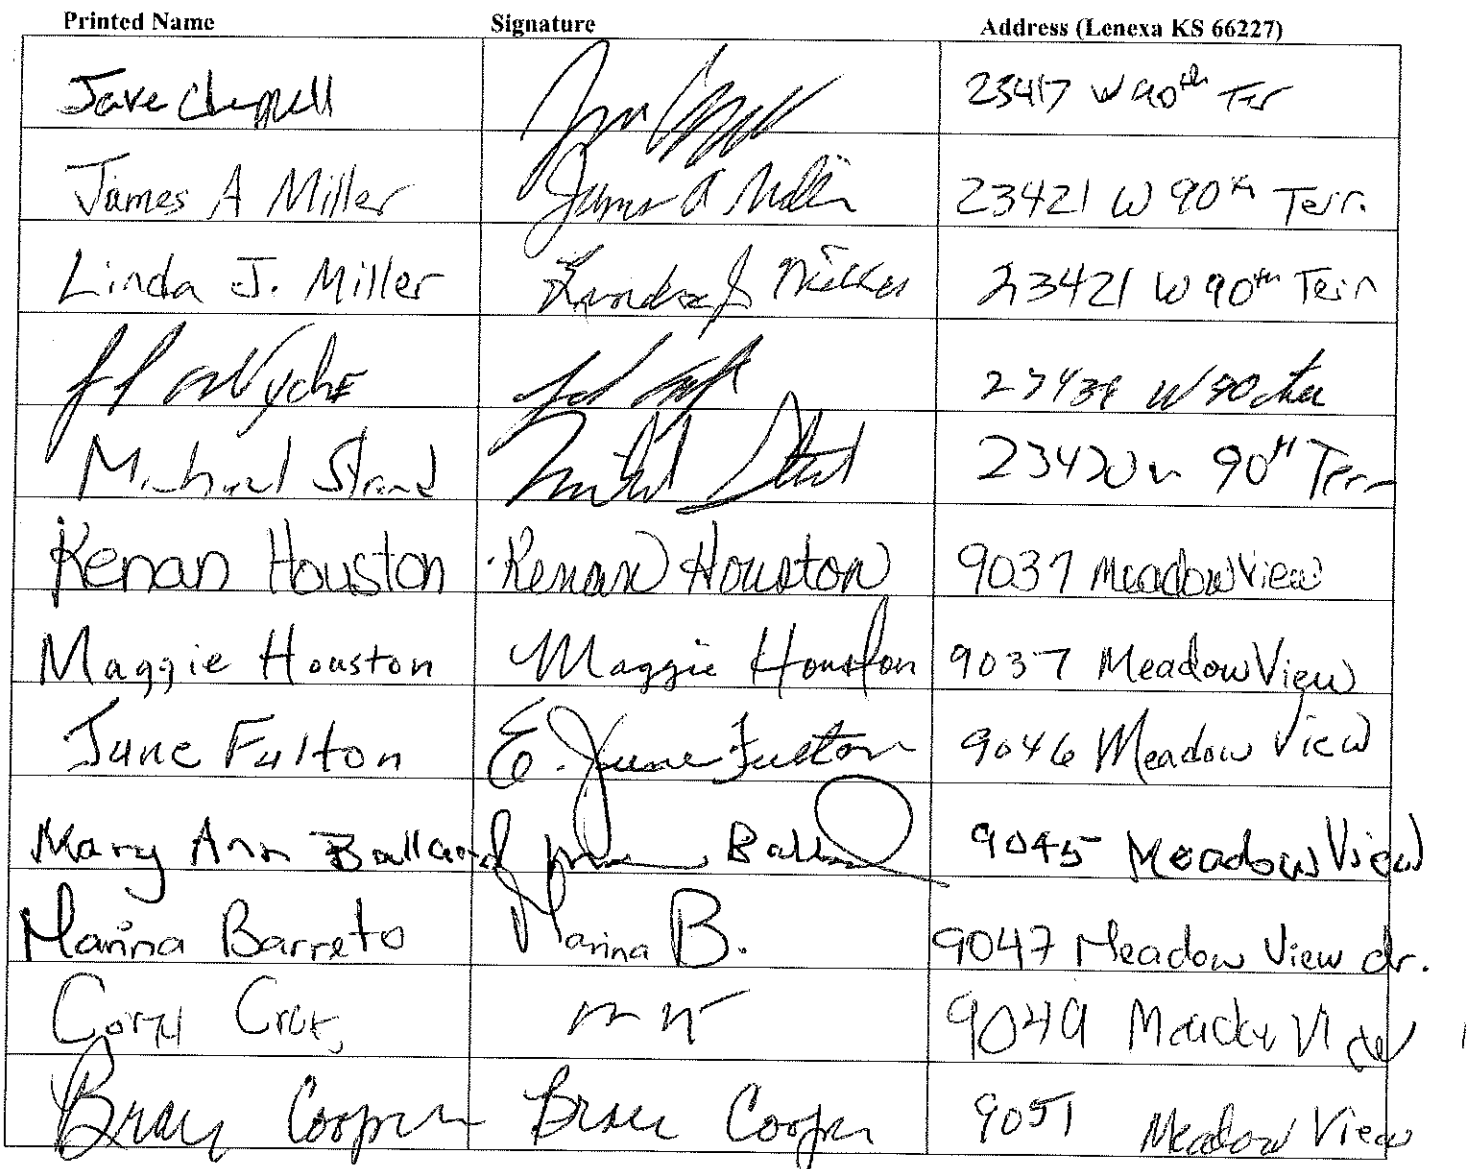 Printed Name Signature Address (Lenexa KS 66227)
Chappell 23417 W 90th Ter
James A Miller James A Miller 23421 W 90th Terr.
Linda J. Miller Linda J Miller 23421 W 90th Terr
W 90
Michael Strand 90th Terr
Kenan Houston Kenan Houston 9037 Meadow View
Maggie Houston Maggie Houston 9037 Meadow View
June Fulton E. June Fulton 9046 Meadow View
Mary Ann Ballard Ballard 9045 Meadow View
Marina Barreto Marina B. 9047 Meadow View dr.
9049 Meadow View
Cooper Cooper 9051 Meadow View